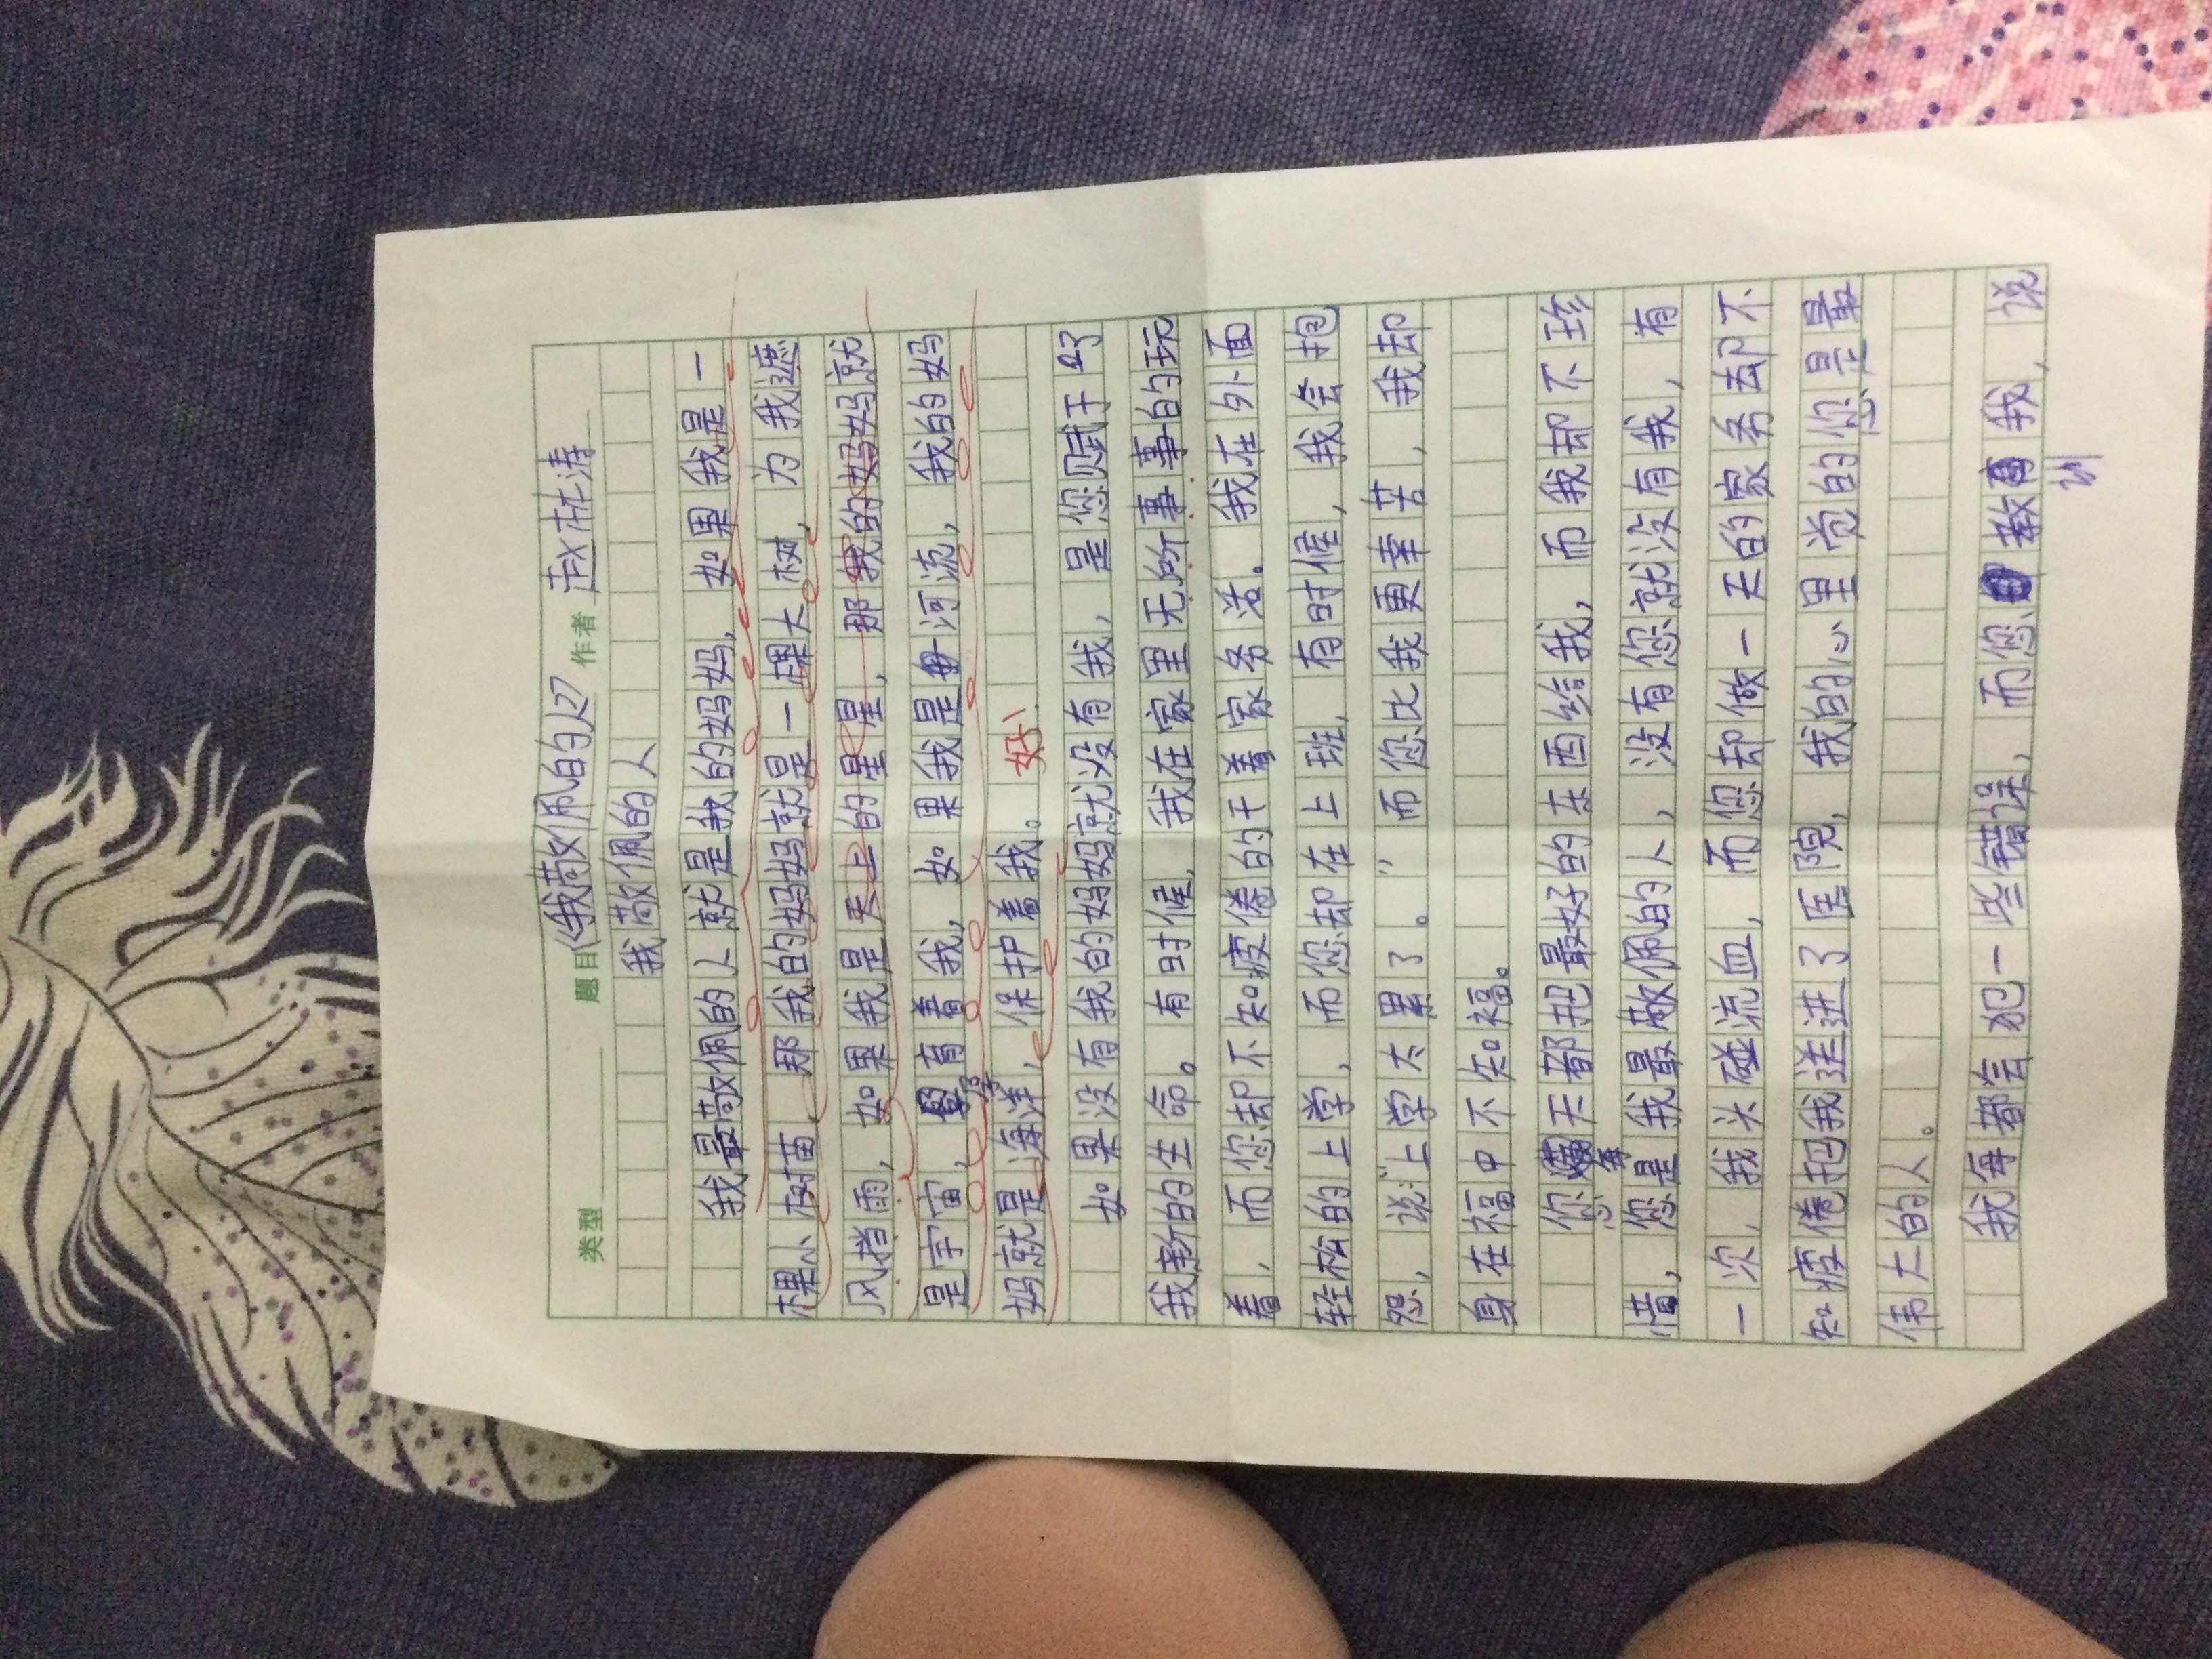 类型 题目《我敬佩的人》 作者 赵林涛
我敬佩的人
我最敬佩的人就是我的妈妈，如果我是一
棵小树苗，那我的妈妈就是一棵大树，为我遮
风挡雨，如果我是天上的星星，那我的妈妈就
是宇宙，孕育着我，如果我是河流，我的妈
妈就是海洋，保护着我。 好！
如果没有我的妈妈就没有我，是您赋于了
我新的生命。有时候，我在家里无所事事的玩
着，而您却不知疲倦的干着家务活。我在外面
轻松的上学，而您却在上班，有时候，我会抱
怨，说“上学太累了。”而您比我更幸苦，我却
身在福中不知福。
您每天都把最好的东西给我，而我却不珍
惜，您是我最敬佩的人，没有您就没有我，有
一次，我头碰流血，而您却做一天的家务却不
知疲倦把我送进了医院，我的心里觉的您是最
伟大的人。
我每都会犯一些错误，而您教训我，说